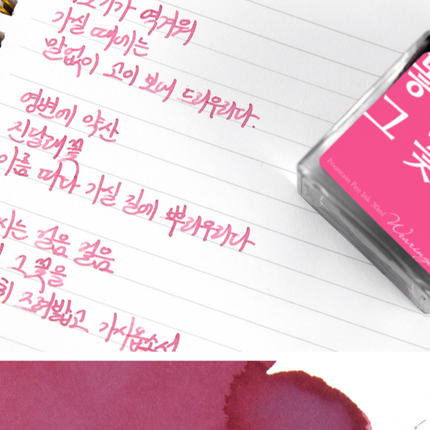 역겨워
가실 때에는
말없이 고이 보내 드리우리다.
영변에 약산
진달래꽃
아름 따다 가실 길에 뿌리우리다
시는 걸음 걸음
그 꽃을
히 즈려밟고 가시옵소서
그
꽃
Fountain Pen Ink 30ml